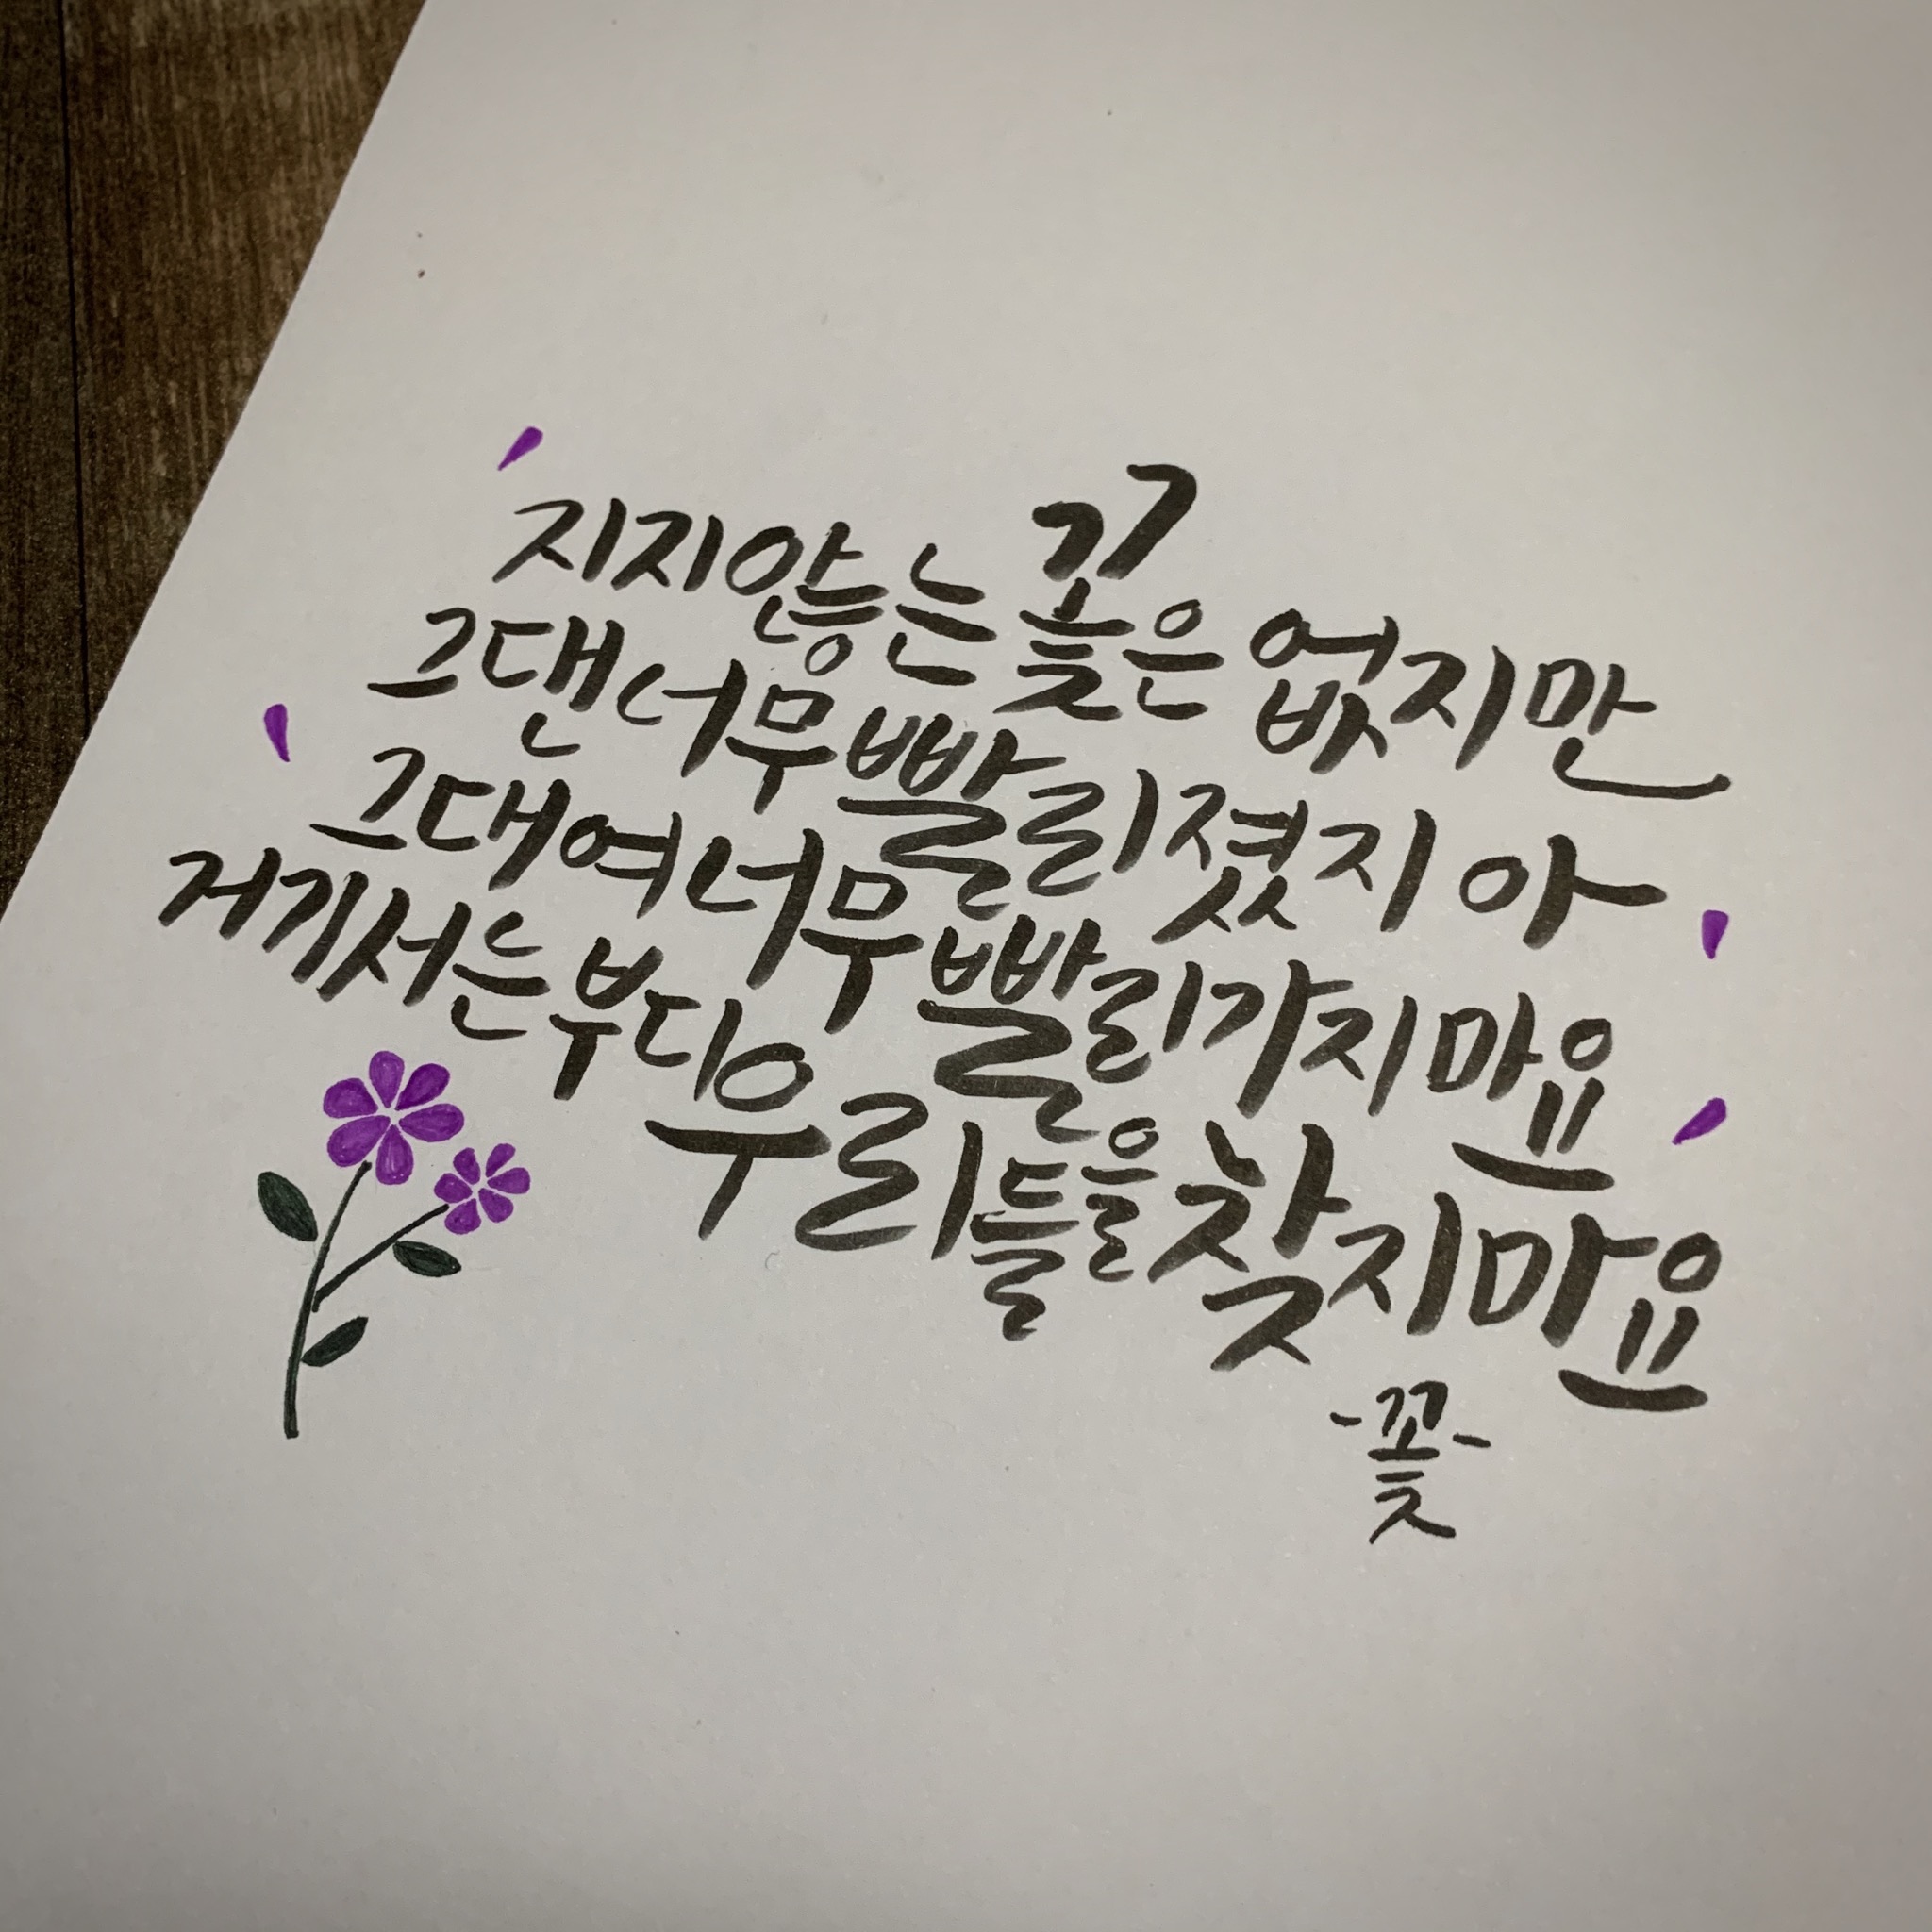 지지않는 꽃은 없지만
그댄 너무 빨리졌지 아
그대여 너무 빨리가지마요
거기서는 부디 우리들을 찾지마요
-꽃-